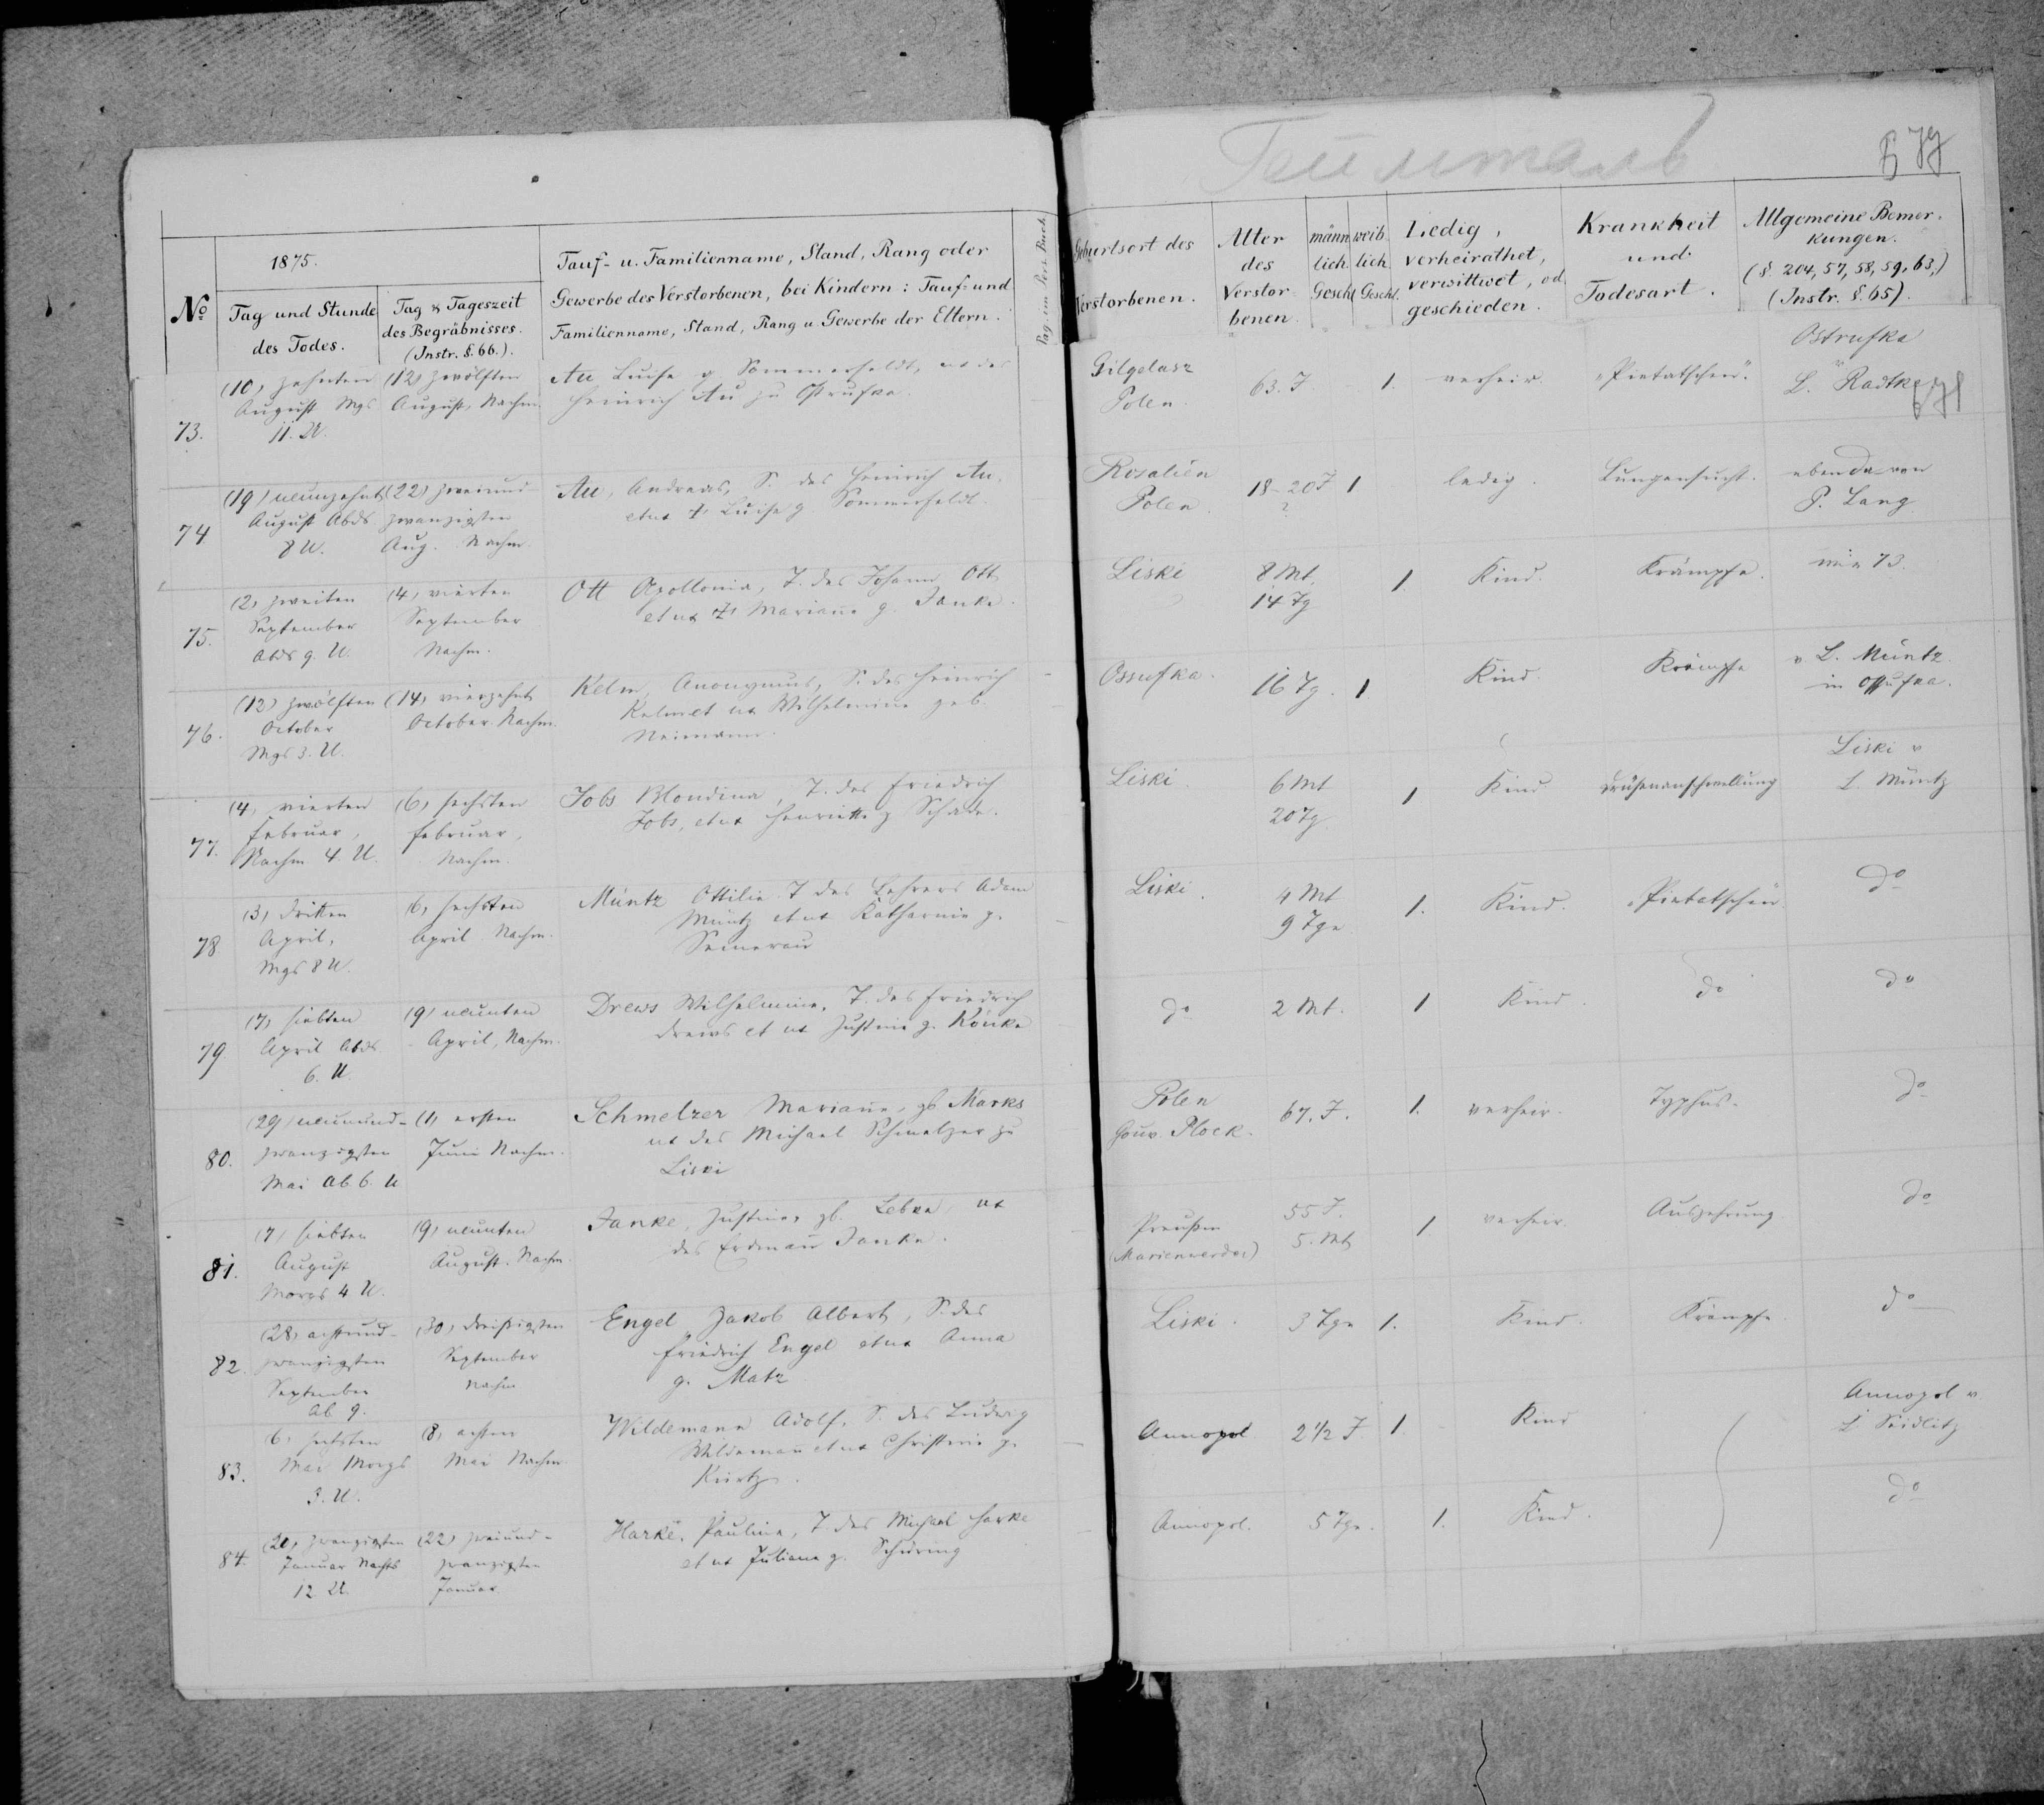 Геимталь
579
1875.
No
Tag und Stunde
des Todes.
Tag & Tageszeit
des Begräbnisses.
(Instr. §. 66.).
Tauf- u. Familienname, Stand, Rang oder
Gewerbe des Verstorbenen, bei Kindern: Tauf- und
Familienname, Stand, Rang u Gewerbe der Eltern.
Pag. im Pers. Buch.
Geburtsort des
Verstorbenen.
Alter
des
Verstor-
benen.
männ
lich.
Geschl
weib.
lich.
Geschl.
Ledig,
verheirathet,
verwittwet, od.
geschieden.
Krankheit
und
Todesart.
Allgemeine Bemer-
kungen.
(§. 204, 57, 58, 59, 63,)
(Instr. §. 65).
73.
(10) zehnten
August Mgs
11. U.
(12) zwölften
August, Nachm.
Au Luise g Sommerfeldt, ux des
Heinrich Au zu Ostrufka.
Gilgelasz
Polen.
63. J
1.
verheir.
Ostrufka
L. Radtke
74
(19) neunzehnt
August Abds
8 U.
(22) zweiund-
zwanzigsten
Aug. Nachm.
Au, Andreas, S. des Heinrich Au,
et ux Luise g Sommerfeldt.
Rosalien
Polen.
18-20 J
?
1
ledig.
Lungensucht.
ebenda von
P. Lang
75.
(2) zweiten
September
Abds 9. U.
(4) vierten
September
Nachm.
Ott Apollonia, T. des Johann Ott
et ux Mariane g. Janke.
Liski
8 Mt.
14 Tg
1.
Kind.
Krämpfe.
wie 73.
76.
(12) zwölften
October
Mgs 3. U.
(14) vierzehnt
October Nachm.
Kelm, Anonymus, S. des Heinrich
Kelm et ux Wilhelmine geb.
Neimann.
Ossufka.
16 Tg.
1.
Kind.
Krämpfe
v L. Müntz
in Ossufka.
77.
(4) vierten
Februar,
Nachm 4. U.
(6) sechsten
Februar,
Nachm.
Jobs Blondina, T. des Friedrich
Jobs, et ux Henriette g Schade.
Liski.
6 Mt
20 Tg.
1
Kind
Drüsenanschwellung
Liski v
L. Müntz
78
(3) dritten
April,
Mgs 8 U.
(6) sechsten
April Nachm.
Müntz Ottilie T des Lehrers Adam
Müntz et ux Katharine g.
Liski.
4 Mt
9 Tge
1.
Kind.
do
79
(7) siebten
April Abds
6. U.
(9) neunten
April, Nachm.
Drews Wilhelmine, T. des Friedrich
Drews et ux Justine g. Könke
do
2 Mt.
1
Kind.
do
do
80.
(29) neunund-
zwanzigsten
Mai Ab. 6. U
(1) ersten
Juni Nachm.
Schmelzer Mariane, gb Marks
ux des Michael Schmelzer zu
Liski
Polen
Gouv. Plock.
67. J.
1.
verheir.
Typhus.
do
81.
(7) siebten
August
Morgs 4 U.
(9) neunten
August. Nachm.
Janke, Justine, gb. ux
des Erdmann Janke.
Preußen
(Marienwerder)
55 J.
5. Mt
1
verheir.
Auszehrung
do
82.
(28) achtund-
zwanzigsten
September
Ab. 9.
(30) dreißigsten
September
Nachm
Engel Jakob Albert, S. des
Friedrich Engel et ux Anna
g. Matz
Liski.
3 Tge
1.
Kind.
Krämpfe
do
83.
(6) sechsten
Mai Morgs
3. U.
(8) achten
Mai Nachm.
Wildemann Adolf, S. des Ludwig
Wildemann et ux Christine g.
Kurtz.
Annopol
2 1/2 J
1.
Kind
Annopol v
L Seidlitz
84.
(20) zwanzigsten
Januar Nachts
12 U.
(22) zweiund-
zwanzigsten
Januar.
Harke, Pauline, T. des Michael Harke
et ux Juliane g. Schüring
Annopol.
5 Tge.
1.
Kind.
do